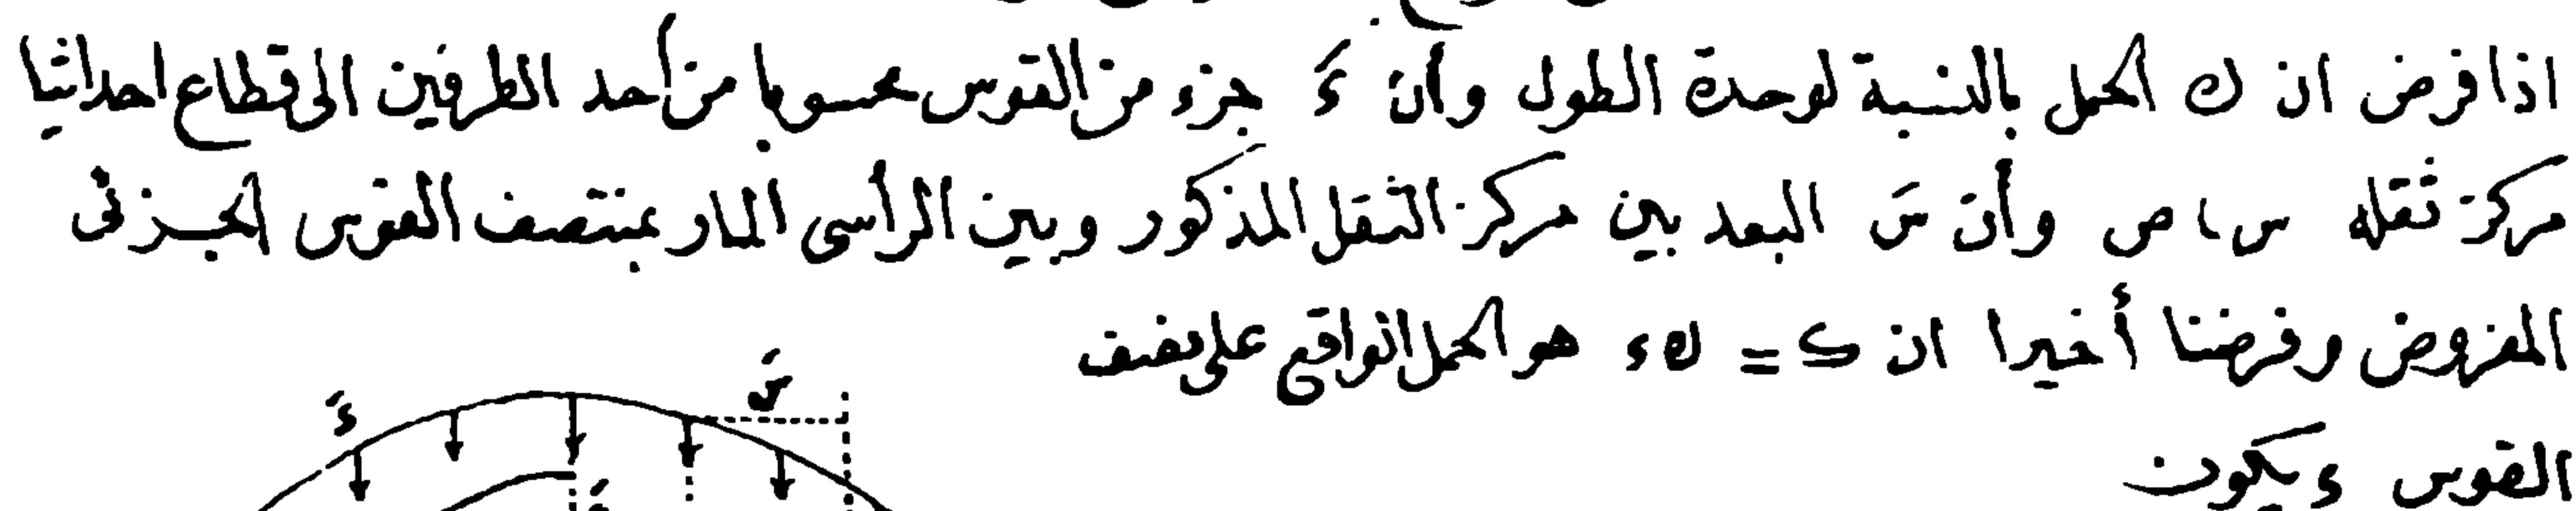 اذا فرض ان ك الحمل بالنسبة لوحدة الطول وأن ءَ جزء من القوس محسوبا من أحد الطرفين الى قطاع احداثيا
مركز ثقله س ، ص وأن سَ البعد بين مركز الثقل المذكور وبين الرأسى المار بمنتصف القوس الجزئى
المفروض وفرضنا أخيرا ان = ك ء هو الحمل الواقع على نصف
سَ
ءَ
القوس ء يكون